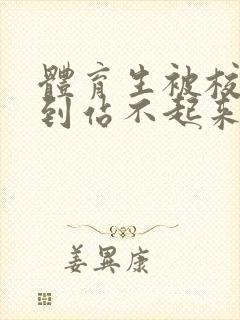 體育生被校
到佔不起來
姜異康